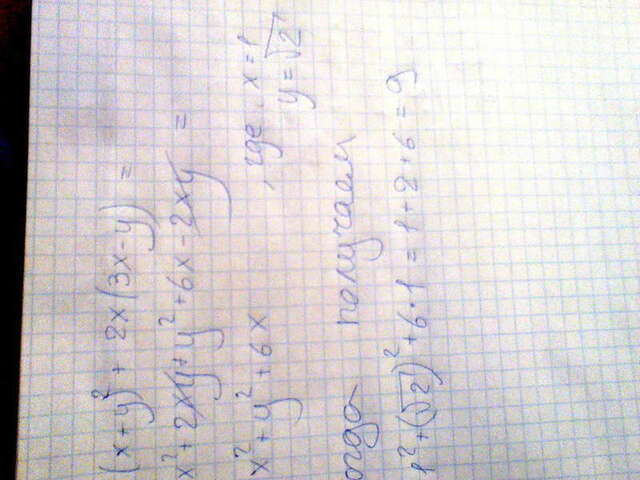 (x+y)² + 2x(3x-y) =
x² + 2xy + y² + 6x - 2xy =
x² + y² + 6x , где x = 1
y = √2
огда получаем
1² + (√2)² + 6·1 = 1 + 2 + 6 = 9